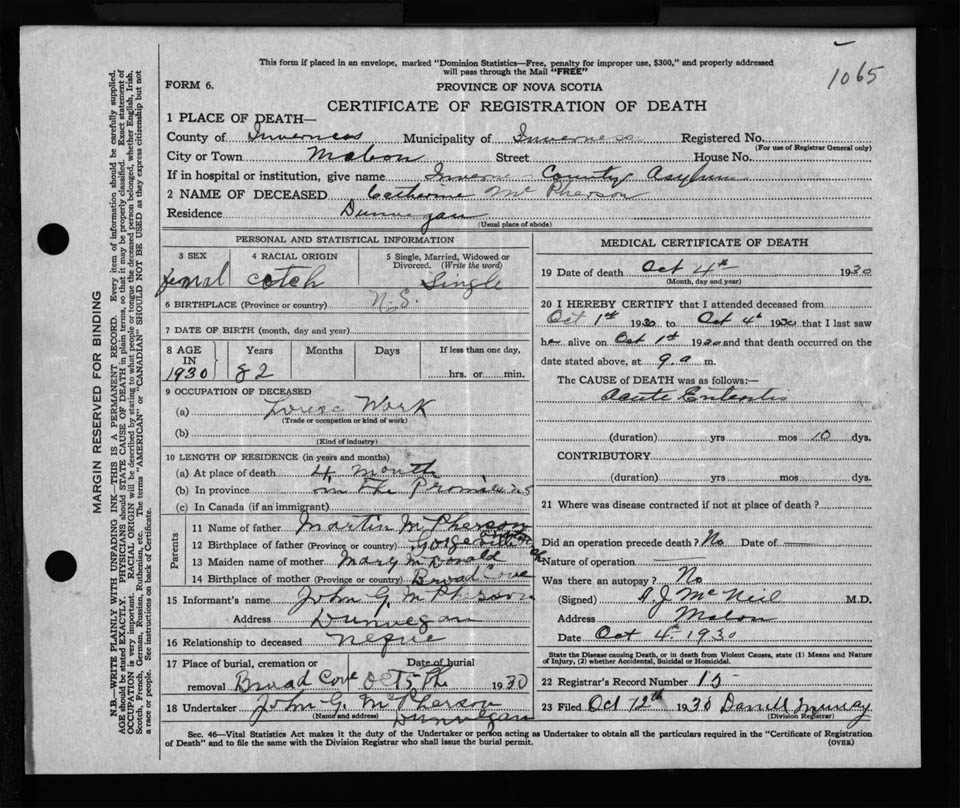 1065
This form if placed in an envelope, marked "Dominion Statistics—Free, penalty for improper use, $300," and properly addressed
will pass through the Mail "FREE"
FORM 6.
PROVINCE OF NOVA SCOTIA
CERTIFICATE OF REGISTRATION OF DEATH
1 PLACE OF DEATH—
County of Inverness Municipality of Inverness Registered No.
(For use of Registrar General only)
City or Town Mabou Street House No.
If in hospital or institution, give name County Asylum
2 NAME OF DECEASED Catherine Mc Pherson
Residence Dunvegan
(Usual place of abode)
PERSONAL AND STATISTICAL INFORMATION
3 SEX 4 RACIAL ORIGIN 5 Single, Married, Widowed or
Divorced. (Write the word)
femal cotch Single
6 BIRTHPLACE (Province or country) N.S.
7 DATE OF BIRTH (month, day and year)
8 AGE Years Months Days If less than one day,
IN
1930 82 hrs. or min.
9 OCCUPATION OF DECEASED
(a) House Work
(Trade or occupation or kind of work)
(b)
(Kind of industry)
10 LENGTH OF RESIDENCE (in years and months)
(a) At place of death 4 month
(b) In province in The
(c) In Canada (if an immigrant)
Parents
11 Name of father Martin McPherson
12 Birthplace of father (Province or country)
13 Maiden name of mother Mary McDonald
14 Birthplace of mother (Province or country) Broad Cove
15 Informant's name John G. McPherson
Address Dunvegan
16 Relationship to deceased
17 Place of burial, cremation or Date of burial
removal Broad Cove Oct 5 the 1930
18 Undertaker John G. McPherson
(Name and address) Dunvegan
MEDICAL CERTIFICATE OF DEATH
19 Date of death Oct 4th 1930
(Month, day and year)
20 I HEREBY CERTIFY that I attended deceased from
Oct 1st 1930 to Oct 4th 1930 that I last saw
her alive on Oct 1st 1930 and that death occurred on the
date stated above, at 9.a m.
The CAUSE OF DEATH was as follows:—
Acute Enteritis
(duration) yrs mos 10 dys.
CONTRIBUTORY
(duration) yrs. mos. dys.
21 Where was disease contracted if not at place of death?
Did an operation precede death? No Date of —
Nature of operation —
Was there an autopsy? No
(Signed) A J McNeil M.D.
Address Mabou
Date Oct 4 - 1930
State the Disease causing Death, or in death from Violent Causes, state (1) Means and Nature
of Injury, (2) whether Accidental, Suicidal or Homicidal.
22 Registrar's Record Number 15
23 Filed Oct 12th 1930
(Division Registrar)
Sec. 46—Vital Statistics Act makes it the duty of the Undertaker or person acting as Undertaker to obtain all the particulars required in the "Certificate of Registration
of Death" and to file the same with the Division Registrar who shall issue the burial permit.
(OVER)
MARGIN RESERVED FOR BINDING
N.B.—WRITE PLAINLY WITH UNFADING INK—THIS IS A PERMANENT RECORD. Every item of information should be carefully supplied.
AGE should be stated EXACTLY. PHYSICIANS should STATE CAUSE OF DEATH in plain terms, so that it may be properly classified. Exact statement of
OCCUPATION is very important. RACIAL ORIGIN will be described by stating to what people or tongue the deceased person belonged, whether English, Irish,
Scotch, French, German, Russian, Ruthenian, etc. The terms "AMERICAN" or "CANADIAN" SHOULD NOT BE USED as they express citizenship but not
a race or people. See instructions on back of Certificate.